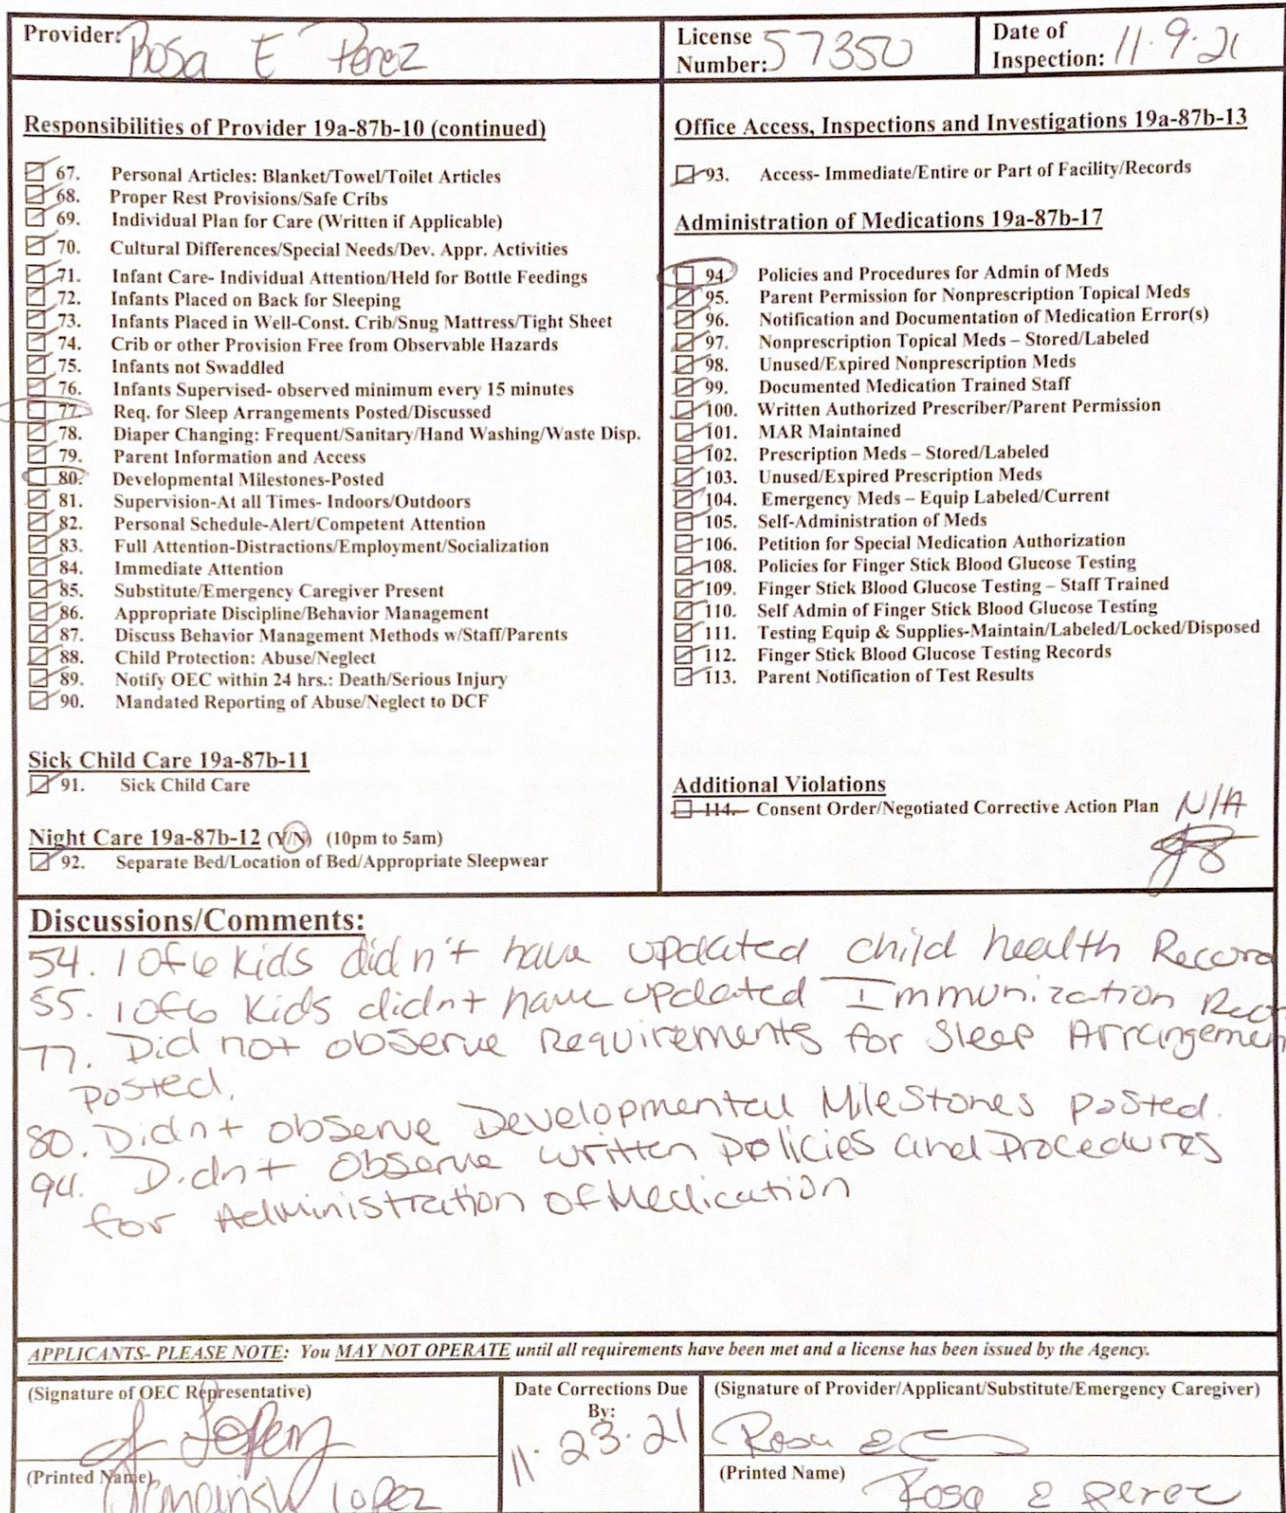 Provider: Rosa E Perez
License Number: 57350
Date of Inspection: 11.9.21
Responsibilities of Provider 19a-87b-10 (continued)
67. Personal Articles: Blanket/Towel/Toilet Articles
68. Proper Rest Provisions/Safe Cribs
69. Individual Plan for Care (Written if Applicable)
70. Cultural Differences/Special Needs/Dev. Appr. Activities
71. Infant Care- Individual Attention/Held for Bottle Feedings
72. Infants Placed on Back for Sleeping
73. Infants Placed in Well-Const. Crib/Snug Mattress/Tight Sheet
74. Crib or other Provision Free from Observable Hazards
75. Infants not Swaddled
76. Infants Supervised- observed minimum every 15 minutes
77. Req. for Sleep Arrangements Posted/Discussed
78. Diaper Changing: Frequent/Sanitary/Hand Washing/Waste Disp.
79. Parent Information and Access
80. Developmental Milestones-Posted
81. Supervision-At all Times- Indoors/Outdoors
82. Personal Schedule-Alert/Competent Attention
83. Full Attention-Distractions/Employment/Socialization
84. Immediate Attention
85. Substitute/Emergency Caregiver Present
86. Appropriate Discipline/Behavior Management
87. Discuss Behavior Management Methods w/Staff/Parents
88. Child Protection: Abuse/Neglect
89. Notify OEC within 24 hrs.: Death/Serious Injury
90. Mandated Reporting of Abuse/Neglect to DCF
Sick Child Care 19a-87b-11
91. Sick Child Care
Night Care 19a-87b-12 (Y/N) (10pm to 5am)
92. Separate Bed/Location of Bed/Appropriate Sleepwear
Office Access, Inspections and Investigations 19a-87b-13
93. Access- Immediate/Entire or Part of Facility/Records
Administration of Medications 19a-87b-17
94. Policies and Procedures for Admin of Meds
95. Parent Permission for Nonprescription Topical Meds
96. Notification and Documentation of Medication Error(s)
97. Nonprescription Topical Meds – Stored/Labeled
98. Unused/Expired Nonprescription Meds
99. Documented Medication Trained Staff
100. Written Authorized Prescriber/Parent Permission
101. MAR Maintained
102. Prescription Meds – Stored/Labeled
103. Unused/Expired Prescription Meds
104. Emergency Meds – Equip Labeled/Current
105. Self-Administration of Meds
106. Petition for Special Medication Authorization
108. Policies for Finger Stick Blood Glucose Testing
109. Finger Stick Blood Glucose Testing – Staff Trained
110. Self Admin of Finger Stick Blood Glucose Testing
111. Testing Equip & Supplies-Maintain/Labeled/Locked/Disposed
112. Finger Stick Blood Glucose Testing Records
113. Parent Notification of Test Results
Additional Violations
114. Consent Order/Negotiated Corrective Action Plan N/A
Discussions/Comments:
54. 1 of 6 kids didn't have updated child health Record
55. 1 of 6 Kids didnt have updated Immunization Reco
77. Did not observe Requirements for Sleep Arrangemen
posted.
80. Didnt observe Developmental Milestones posted.
94. Didnt observe written policies and Procedures
for Administration of Medication
APPLICANTS- PLEASE NOTE: You MAY NOT OPERATE until all requirements have been met and a license has been issued by the Agency.
(Signature of OEC Representative)
Lopez
(Printed Name)
Lopez
Date Corrections Due
By:
11.23.21
(Signature of Provider/Applicant/Substitute/Emergency Caregiver)
Rosa E
(Printed Name)
Rosa E Perez